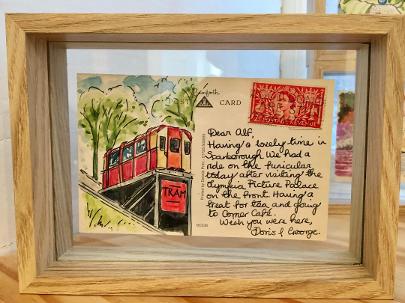 CARD
Dear Alf,
Having a lovely time in
Scarborough. We had a
ride on the funicular
today after visiting the
Olympia Picture Palace
on the front. Having a
treat for tea and going
to Corner Café.
Wish you were here,
Doris & George.
TRAM